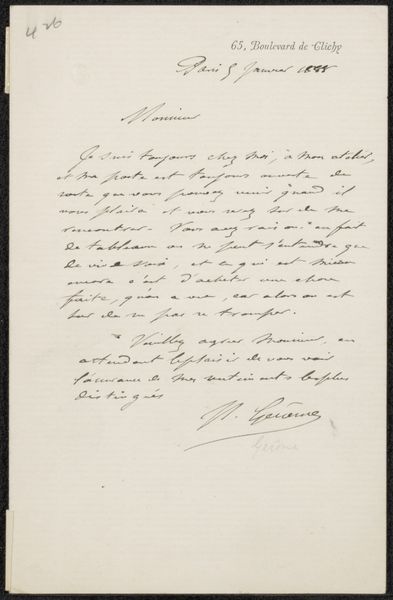 426
65, Boulevard de Clichy
Paris 5 Janvier
Monsieur
Je suis toujours chez moi, à mon atelier,
et ma porte est toujours ouverte de
sorte que vous pouvez venir quand il
vous plaira et vous serez sur de me
rencontrer. Vous avez raison: en fait
de tableaux on ne peut s'entendre que
de vive voix, et ce qui est mieux
encore c'est d'acheter une chose
faite, qu'on a vue, car alors on est
sur de ne pas se tromper.
Veuillez agréer Monsieur, en
attendant le plaisir de vous voir
l'assurance de mes sentiments les plus
distingués
Gérôme
Gérôme